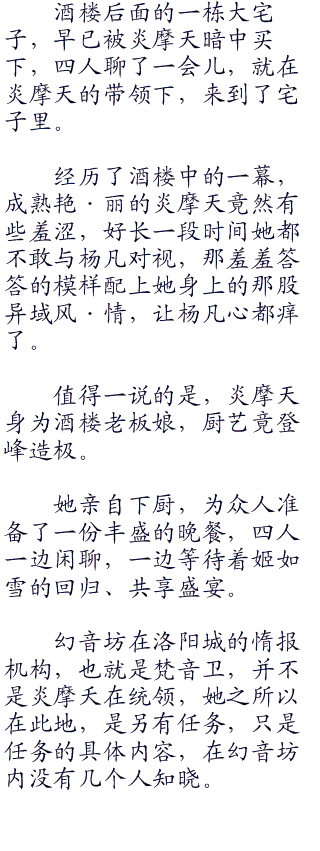 酒楼后面的一栋大宅
子，早已被炎摩天暗中买
下，四人聊了一会儿，就在
炎摩天的带领下，来到了宅
子里。
经历了酒楼中的一幕，
成熟艳·丽的炎摩天竟然有
些羞涩，好长一段时间她都
不敢与杨凡对视，那羞羞答
答的模样配上她身上的那股
异域风·情，让杨凡心都痒
了。
值得一说的是，炎摩天
身为酒楼老板娘，厨艺竟登
峰造极。
她亲自下厨，为众人准
备了一份丰盛的晚餐，四人
一边闲聊，一边等待着姬如
雪的回归、共享盛宴。
幻音坊在洛阳城的情报
机构，也就是梵音卫，并不
是炎摩天在统领，她之所以
在此地，是另有任务，只是
任务的具体内容，在幻音坊
内没有几个人知晓。